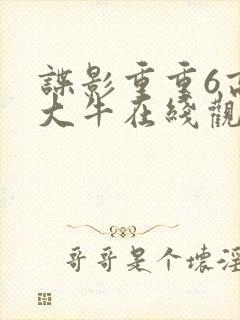 諜影重重6高
大牛在綫觀
哥哥是个壞淫